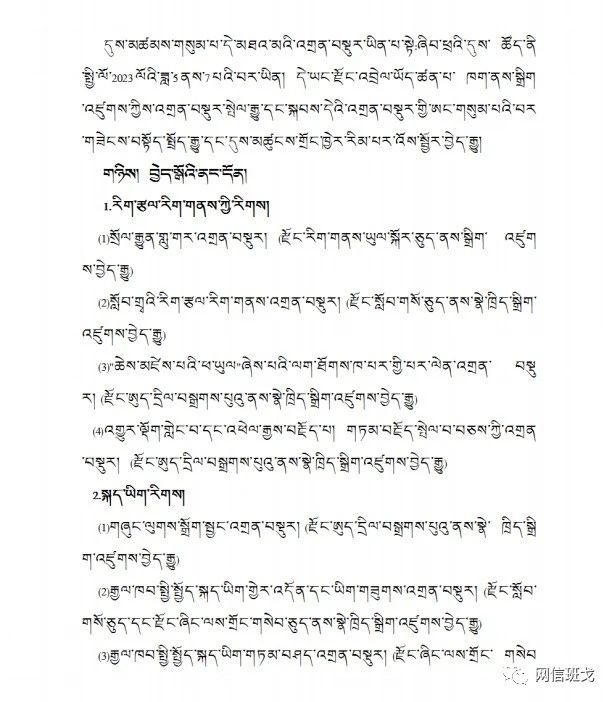 དུས་མཚམས་གསུམ་པ་དེ་མཐའ་མའི་འགྲན་བསྡུར་ཡིན་པ་སྟེ།ཞིབ་ཕྲའི་དུས་ ཚོད་ནི་
སྤྱི་ལོ་2023ལོའི་ཟླ་5ནས་7པའི་བར་ཡིན། དེ་ཡང་རྫོང་འབྲེལ་ཡོད་ཚན་པ་ ཁག་ནས་སྒྲིག་
འཛུགས་ཀྱིས་འགྲན་བསྡུར་སྤེལ་རྒྱུ་དང་སྐབས་དེའི་འགྲན་བསྡུར་གྱི་ཨང་གསུམ་པའི་བར་
གཟེངས་བསྟོད་སྤྲོད་རྒྱུ་དང་དུས་མཚུངས་གྲོང་ཁྱེར་རིམ་པར་འོས་སྦྱོར་བྱེད་རྒྱུ།
གཉིས། བྱེད་སྒོའི་ནང་དོན།
1.རིག་རྩལ་རིག་གནས་ཀྱི་རིགས།
(1)སྲོལ་རྒྱུན་གླུ་གར་འགྲན་བསྡུར། (རྫོང་རིག་གནས་ཡུལ་སྐོར་ཅུད་ནས་སྒྲིག་ འཛུག
ས་བྱེད་རྒྱུ)
(2)སློབ་གྲྭའི་རིག་རྩལ་རིག་གནས་འགྲན་བསྡུར། (རྫོང་སློབ་གསོ་ཅུད་ནས་སྣེ་ཁྲིད་སྒྲིག་
འཛུགས་བྱེད་རྒྱུ)
(3)"ཆེས་མཛེས་པའི་ཕ་ཡུལ"ཞེས་པའི་ལག་ཐོགས་ཁ་པར་གྱི་པར་ལེན་འགྲན་ བསྡུ
ར། (རྫོང་ཨུད་དྲིལ་བསྒྲགས་པུའུ་ནས་སྣེ་ཁྲིད་སྒྲིག་འཛུགས་བྱེད་རྒྱུ)
(4)འགྱུར་ལྡོག་གླེང་བ་དང་འཕེལ་རྒྱས་བརྗོད་པ། གཏམ་བརྗོད་སྤེལ་བ་བཅས་ཀྱི་འགྲན
་བསྡུར། (རྫོང་ཨུད་དྲིལ་བསྒྲགས་པུའུ་ནས་སྣེ་ཁྲིད་སྒྲིག་འཛུགས་བྱེད་རྒྱུ)
2.སྐད་ཡིག་རིགས།
(1)གཞུང་ལུགས་སྒྲོག་སྦྱང་འགྲན་བསྡུར། (རྫོང་ཨུད་དྲིལ་བསྒྲགས་པུའུ་ནས་སྣེ་ ཁྲིད་སྒྲི
ག་འཛུགས་བྱེད་རྒྱུ)
(2)རྒྱལ་ཁབ་སྤྱི་སྤྱོད་སྐད་ཡིག་གྱེར་འདོན་དང་ཡིག་གཟུགས་འགྲན་བསྡུར། (རྫོང་སློབ་
གསོ་ཅུད་དང་རྫོང་ཞིང་ལས་གྲོང་གསེབ་ཅུད་ནས་སྣེ་ཁྲིད་སྒྲིག་འཛུགས་བྱེད་རྒྱུ)
(3)རྒྱལ་ཁབ་སྤྱི་སྤྱོད་སྐད་ཡིག་གཏམ་བཤད་འགྲན་བསྡུར། (རྫོང་ཞིང་ལས་གྲོང་ གསེབ
网信班戈